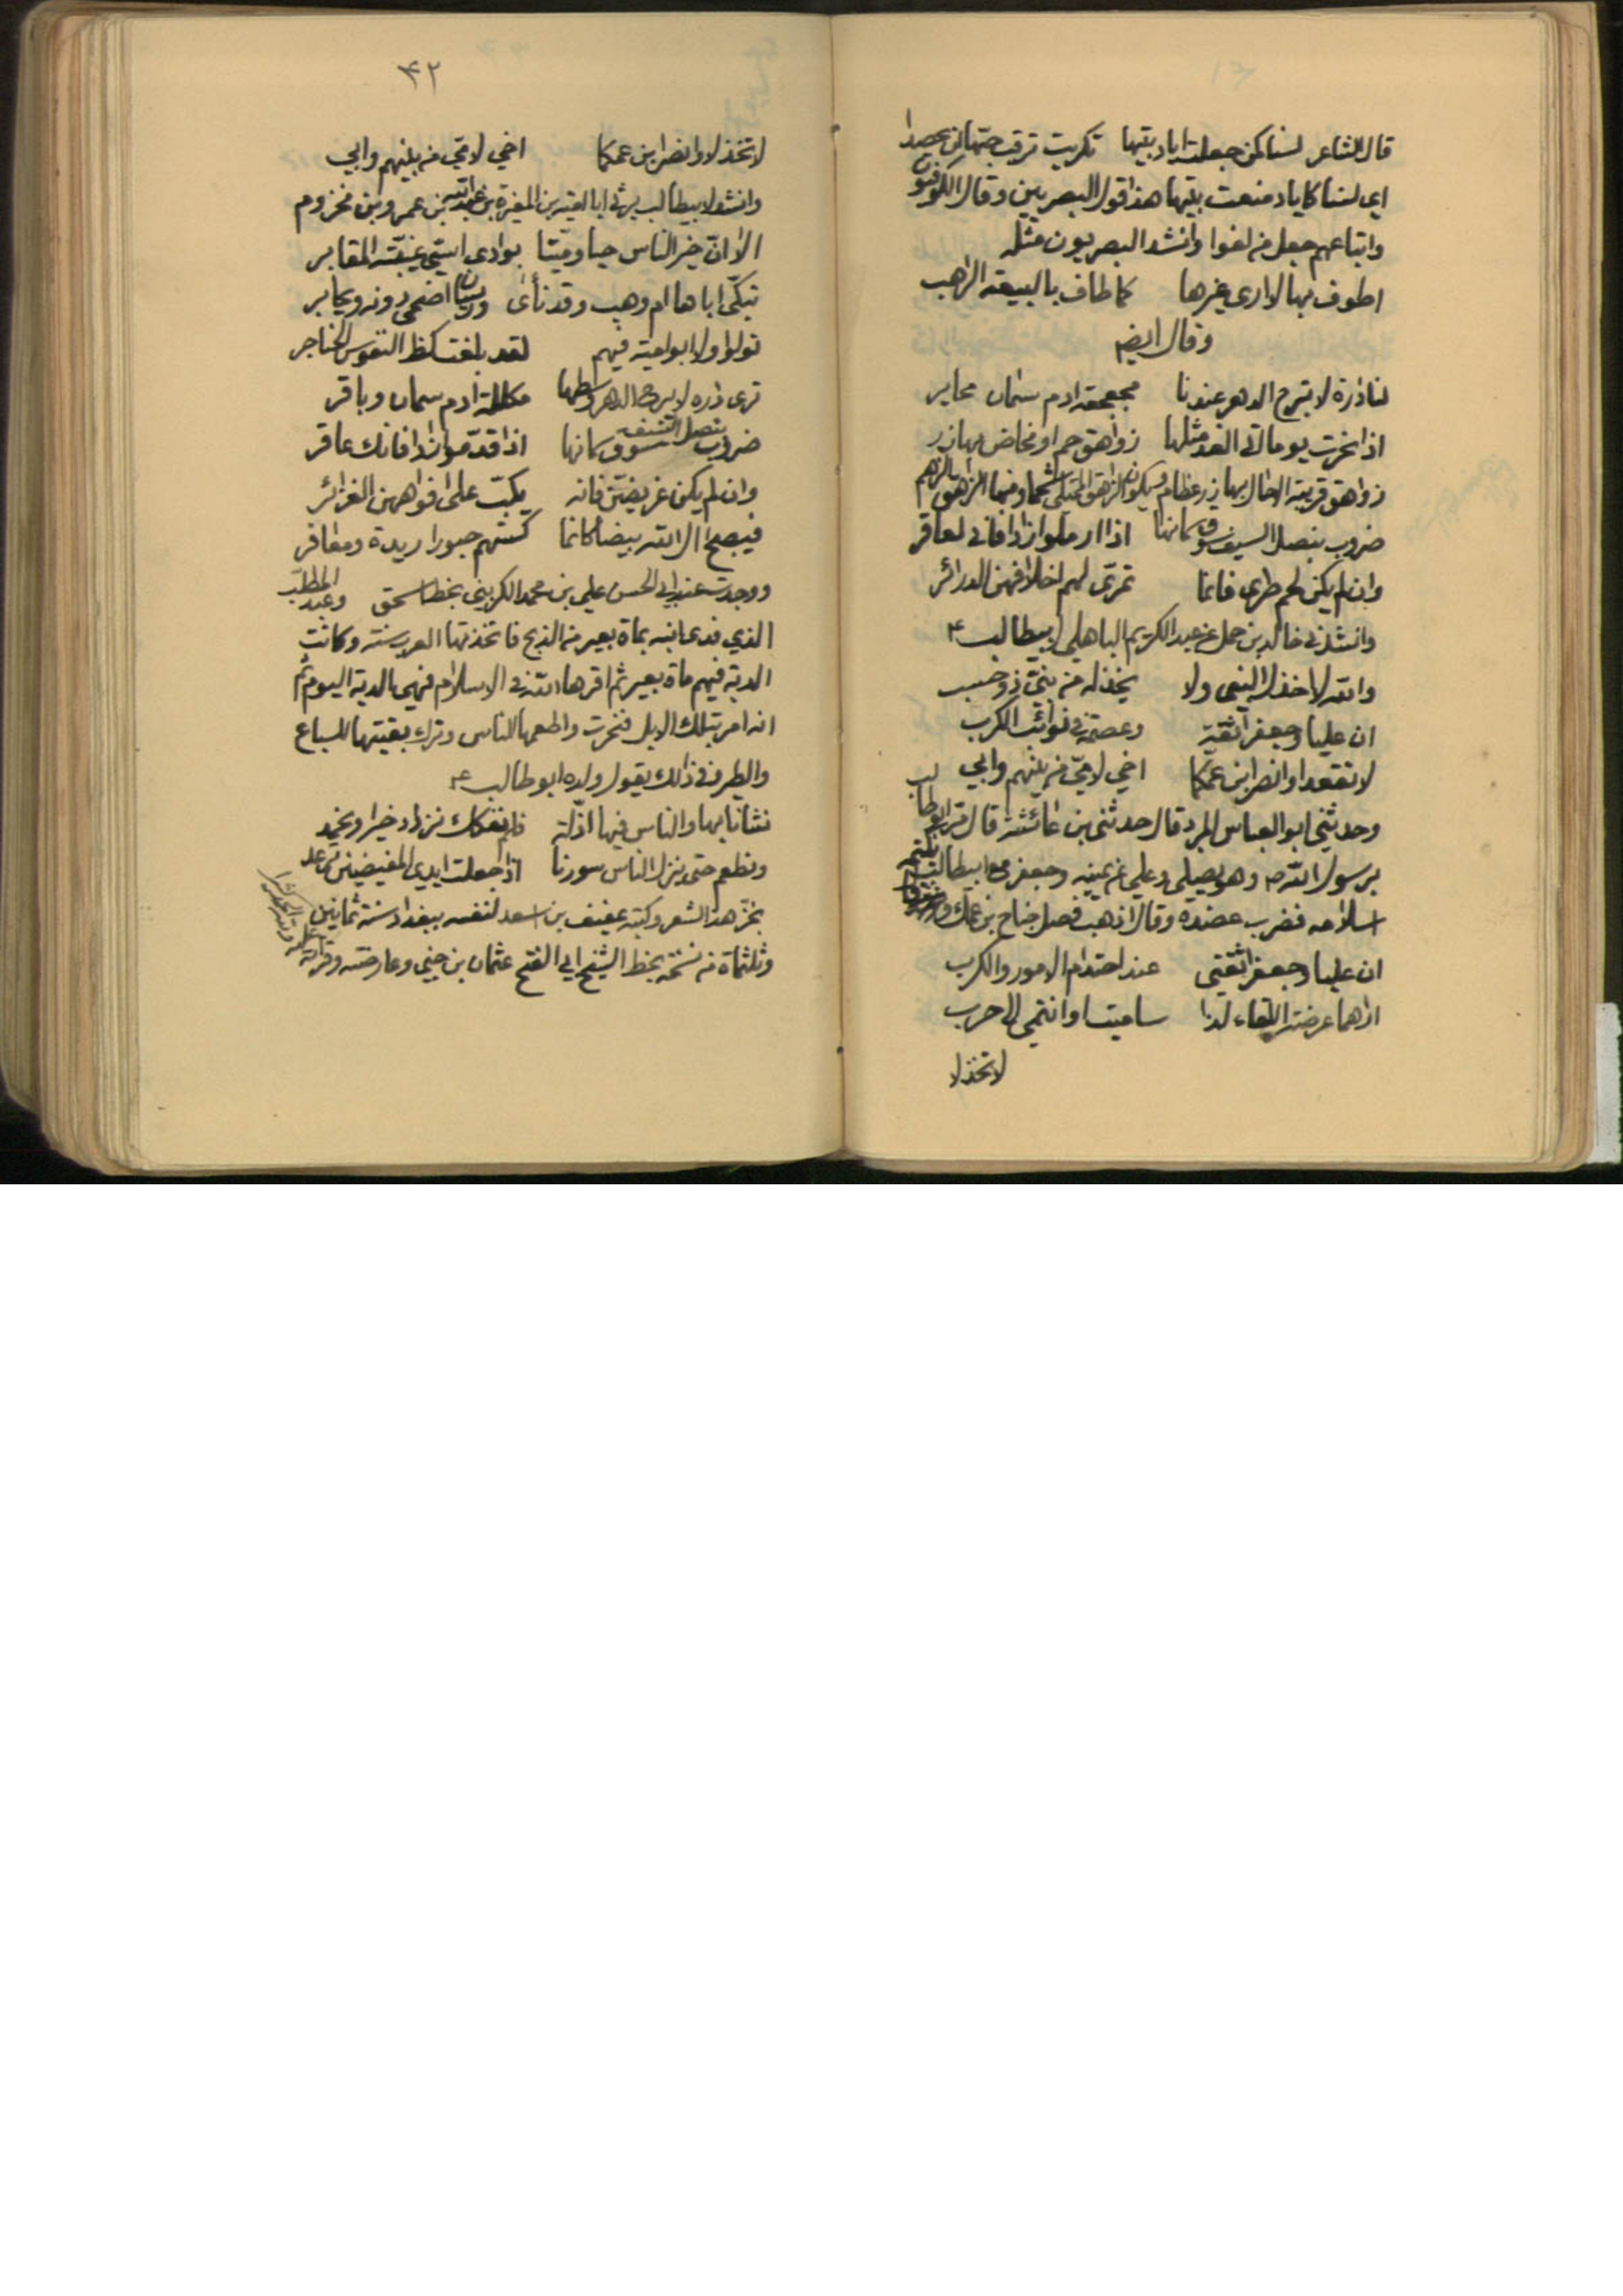 قال الشاعر لسنا كمن جعلت اياد بيتها تكريت ترقب حبها ان يحصدا
اي لسنا كاياد منعت بيتها هذا قول البصريين وقال الكوفيون
واتباعهم جعل من لغوا وانشد البصريون مثله
اطوف بها لا ارى غيرها كما طاف بالبيعة الراهب
وقال ايضا
لنا دارة لا يبرح الدهر عندنا مجعجعة ادم سمان محابر
اذا نحرت يوما اتى الغد مثلها زواهق حم او مخاض بهازر
زواهق بهازر عظام
ضروب بنصل السيف سوق سمانها اذا ارملوا زادا فاني لعاقر
وان لم يكن لحم طري فانما تمرى لهم اخلافهن الدرائر
وانشدني خالد بن حمل عن عبد الكريم الباهلي لابيطالب ۴
والله لا اخذل النبي ولا يخذله من بني ذو حسب
ان عليا وجعفرا ثقة وعصمة في نوائب الكرب
لا تقعدا وانصرا ابن عمكما اخي لامي من بينهم وابي
وحدثني ابو العباس المبرد قال حدثني بن عائشة قال مر ابو طالب
برسول الله ص وهو يصلي وعلي عن يمينه وجعفر مع ابيطالب يكتم
اسلامه فضرب عضده وقال اذهب فصل جناح بن عمك
ان عليا وجعفرا ثقتي عند احتدام الامور والكرب
اراهما عرضة اللقاء اذا ساميت او انتمي الى حرب
لا تخذلا
۴۲
لا تخذلا وانصرا ابن عمكما اخي لامي من بينهم وابي
وانشد لابيطالب يرثي ابا امية بن المغيرة بن عبد الله بن عمرو بن مخزوم
الا ان خير الناس حيا وميتا بوادي اشي غيبته المقابر
تبكى اباها ام وهب وقد نأى وريسان اضحى دونه ويحابر
تولوا ولا ابو امية فيهم لقد بلغت كظ النفوس الحناجر
ترى داره لا يبرح الدهر وسطها مكللة ادم سمان وباقر
ضروب بنصل السيف سوق سمانها اذا قدموا زادا فانك عاقر
وان لم يكن غريض فانه يكب على افواههن الغرائر
فيصبح ال الله بيضا كانما كستهم حبورا ريدة ومعافر
ووجدت عند ابي الحسن علي بن محمد الكريني بخط اسحق وعبد المطلب
الذي فدى ابنه بمأة بعير من الذبح فاتخذتها العرب سنة وكانت
الدية فيهم مأة بعير ثم اقرها الله في الاسلام فهي الدية اليوم ثم
انه امر بتلك الابل فنحرت واطعمها الناس وترك بقيتها للسباع
والطير ففي ذلك يقول ولده ابو طالب ۴
نشأنا بها والناس فيها اذلة فلم ننفكك نزداد خيرا ونحمد
ونطعم حتى ينزل الناس سورنا اذا جعلت ايدي المفيضين ترعد
نجز هذا الشعر وكتبه عفيف بن اسعد لنفسه ببغداد سنة ثمانين
وثلثمأة من نسخة بخط الشيخ ابي الفتح عثمان بن جني وعارضته وقرأته